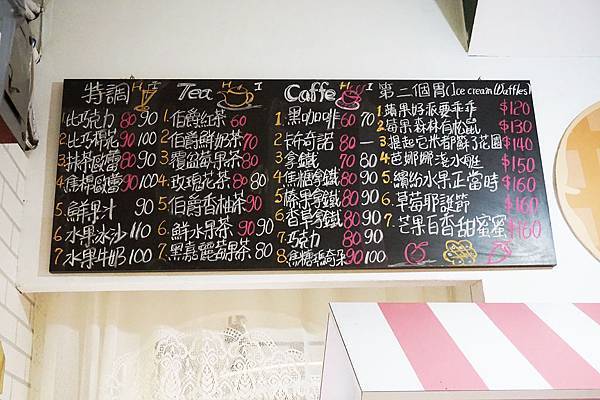 特調 H I
1.比巧克力 80 90
2.比巧棉花 90 100
3.抹茶歐蕾 80 90
4.焦糖歐蕾 90 100
5.鮮果汁 90
6.水果冰沙 110
7.水果牛奶 100
Tea H I
1.伯爵紅茶 60
2.伯爵鮮奶茶 70
3.覆盆莓果茶 80
4.玫瑰花茶 80 80
5.伯爵香柚茶 90
6.鮮水果茶 90 90
7.黑嘉麗莓果茶 80
Caffe H I
1.黑咖啡 60 70
2.卡布奇諾 80 —
3.拿鐵 70 80
4.焦糖拿鐵 80 90
5.榛果拿鐵 80 90
6.香草拿鐵 80 90
7.巧克力 80 90
8.焦糖瑪奇朵 90 100
第二個胃(Ice cream Waffles)
1.蘋果好派要乖乖 $120
2.莓果森林有松鼠 $130
3.提起它米都醉了花園 $140
4.芭娜娜淺水艇 $150
5.繽紛水果正當時 $160
6.草莓耶誕節 $160
7.芒果百香甜蜜蜜 $160